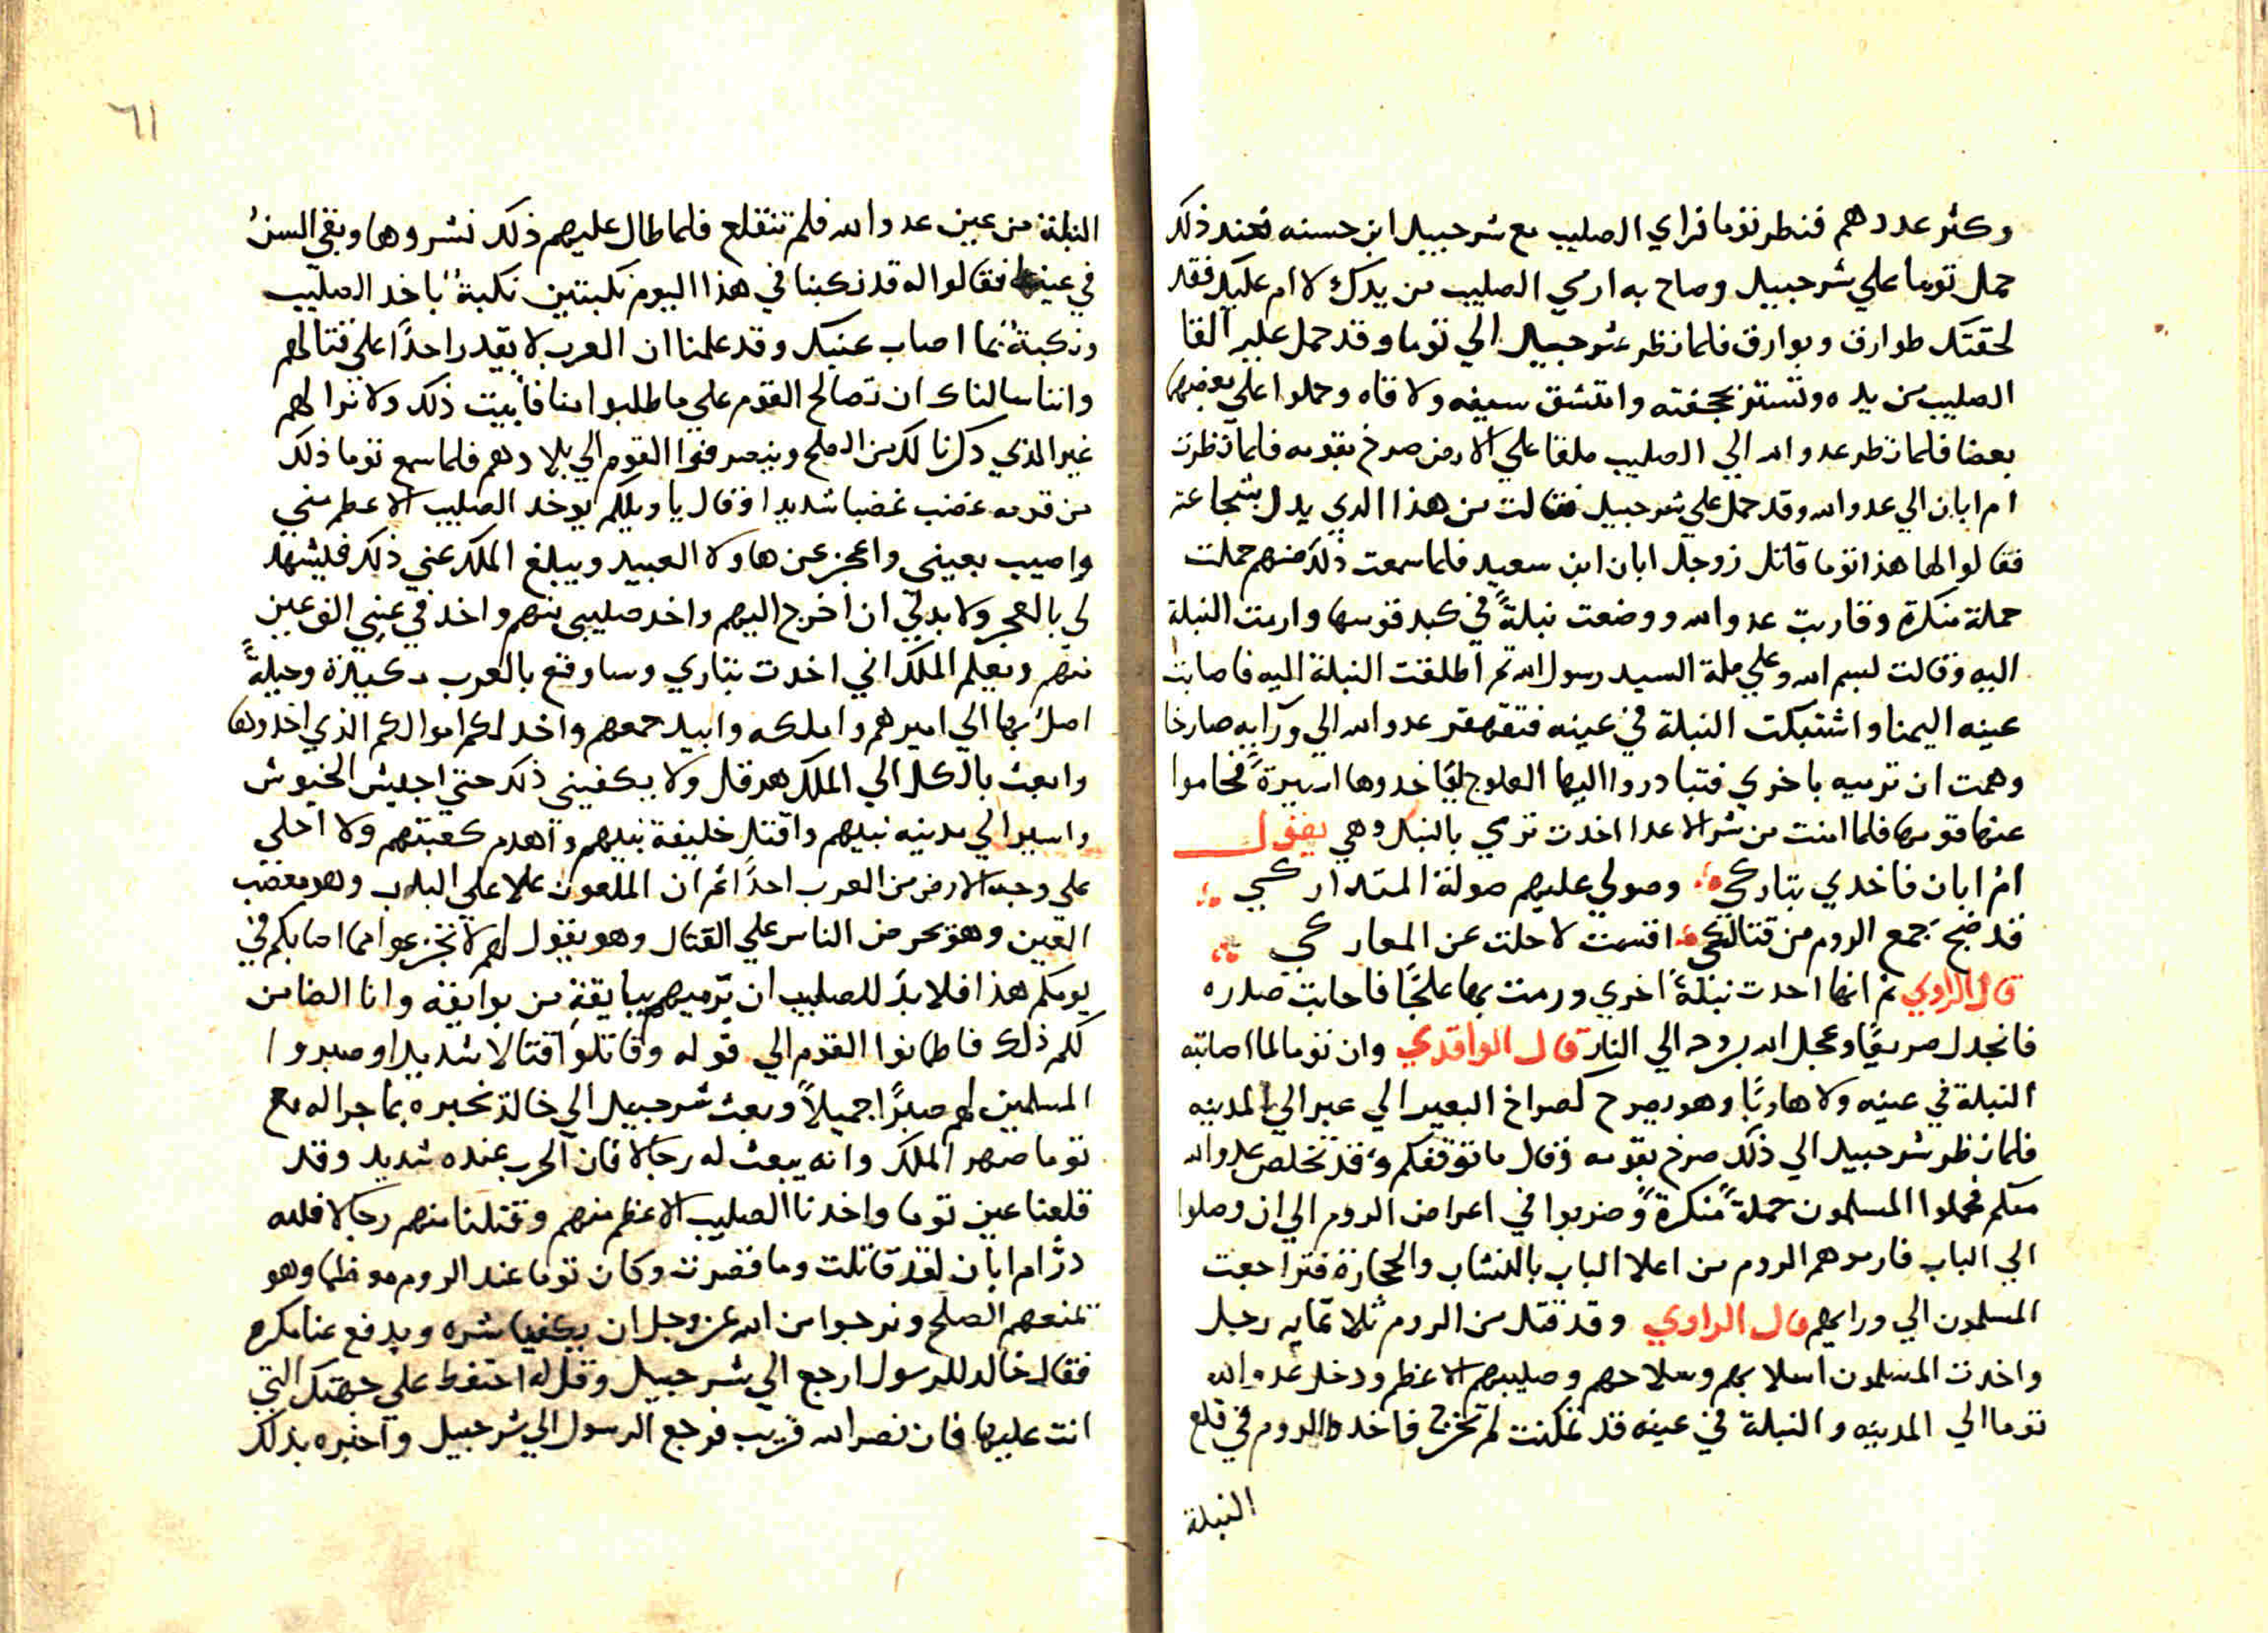 وكثر عددهم فنظر توما فراي الصليب مع شرحبيل ابن حسنه فعند ذلك
حمل توما علي شرحبيل وصاح به ارمي الصليب من يدك لا ام عليك فقد
لحقتك طوارق وبوارق فلما نظر شرحبيل الي توما وقد حمل عليه القا
الصليب من يده وتستر بحجفته وامتشق سيفه ولاقاه وحملوا علي بعضهم
بعضا فلما نظر عدو الله الي الصليب ملقا علي الارض صرخ بقومه فلما نظرت
ام ابان الي عدو الله وقد حمل علي شرحبيل فقالت من هذا الدي يدل بشجاعته
فقالوا لها هذا توما قاتل زوجك ابان ابن سعيد فلما سمعت ذلك منهم حملت
حملة منكرة وقاربت عدو الله ووضعت نبلةً في كبد قوسها وارمت النبلة
اليه وقالت لبسم الله وعلي ملة السيد رسول الله ثم اطلقت النبلة اليه فاصابت
عينه اليمنا واشتبكت النبلة في عينه فتقهقر عدو الله الي ورآيه صارخا
وهمت ان ترميه باخري فتبادروا اليها العلوج ليَاخدوها اسيرةً فحاموا
عنها قومها فلما امنت من شر الاعدا اخدت ترمي بالنبل وهي يقول
امُ ابان فاخدي بتاركي وصولي عليهم صولة المتداركي
قد ضج جمع الروم من قتالكي اقسمت لا حلت عن المعاركي
قال الراوي ثم انها احدت نبلةً اخري ورمت بها علجًا فاصابت صدره
فانجدل صريعًا وعجل الله بروحه الي النار قال الواقدي وان توما لما اصابته
النبلة في عينه ولا هاربًا وهو يصرخ كصراخ البعير الي عبر الي المدينه
فلما نظر شرحبيل الي ذلك صرخ بقومه وقال ما توقفكم وقد تخلص عدو الله
منكم فحملوا المسلمون حملةً منكرةً وضربوا في اعراض الروم الي ان وصلوا
الي الباب فارموهم الروم من اعلا الباب بالنشاب والحجارة فتراجعت
المسلمون الي ورايهم قال الراوي وقد قتل من الروم ثلاثمايه رجل
واخدت المسلمون اسلابهم وسلاحهم وصليبهم الاعظم ودخل عدو الله
توما الي المدينه والنبلة في عينه قد تمكنت لم تخرج فاخدوا الروم في قلع
النبلة
٦١
النبلة من عين عدو الله فلم تنقلع فلما طال عليهم ذلك نشروها وبقي السنُ
في عينه فقالوا له قد نكبنا في هذا اليوم نكبتين نكبةً باخد الصليب
ونكبةً بما اصاب عينك وقد علمنا ان العرب لا يقدر احدًا علي قتالهم
واننا سالناك ان تصالح القوم علي ما طلبوا منا فأبيت ذلك ولا نرا لهم
غير الذي دكرنا لك من الصلح وينصرفوا القوم الي بلادهم فلما سمع توما ذلك
من قومه غضب غضبا شديدا وقال يا ويلكم يوخد الصليب الاعظم مني
واصيب بعيني واعجز عن هاولا العبيد ويبلغ الملك عني ذلك فليشهد
لي بالعجز ولا بد لي ان اخرج اليهم واخد صليبي منهم واخد في عيني الف عين
منهم ويعلم الملك اني اخدت بتاري وساوقع بالعرب مكيدة وحيلةً
اصل بها الي اميرهم واملكه وابيد جمعهم واخد لكم اموالكم الذي اخدوها
وابعث بالكل الي الملك هرقل ولا يكفيني ذلك حتي اجيش الجيوش
واسير الي مدينه نبيهم واقتل خليفة نبيهم واهدم كعبتهم ولا اخلي
علي وجه الارض من العرب احدًا ثم ان الملعون علا علي الباب وهو معصب
العين وهو يحرض الناس علي القتال وهو يقول لهم لا تجزعوا مما اصابكم في
يومكم هذا فلا بدَ للصليب ان يرميهم ببايقةٍ من بوايقه وانا الضامن
لكم ذلك فاطمانوا القوم الي قوله وقاتلوا قتالا شديدا وصبروا
المسلمين لهم صبرًا جميلاً وبعث شرحبيل الي خالد نخبره بما جرا له مع
توما صهر الملك وانه يبعث له رجالا فان الحرب عنده شديد وقد
قلعنا عين توما واخدنا الصليب الاعظم منهم وقتلنا منهم رجالا فلله
درُ ام ابان لقد قاتلت وما قصرت وكان توما عند الروم معظما وهو
يمنعهم الصلح ونرجوا من الله عز وجل ان يكفينا شره ويدفع عنا مكره
فقال خالد للرسول ارجع الي شرحبيل وقل له احتفظ علي جهتك التي
انت عليها فان نصر الله قريب فرجع الرسول الي شرحبيل واخبره بذلك